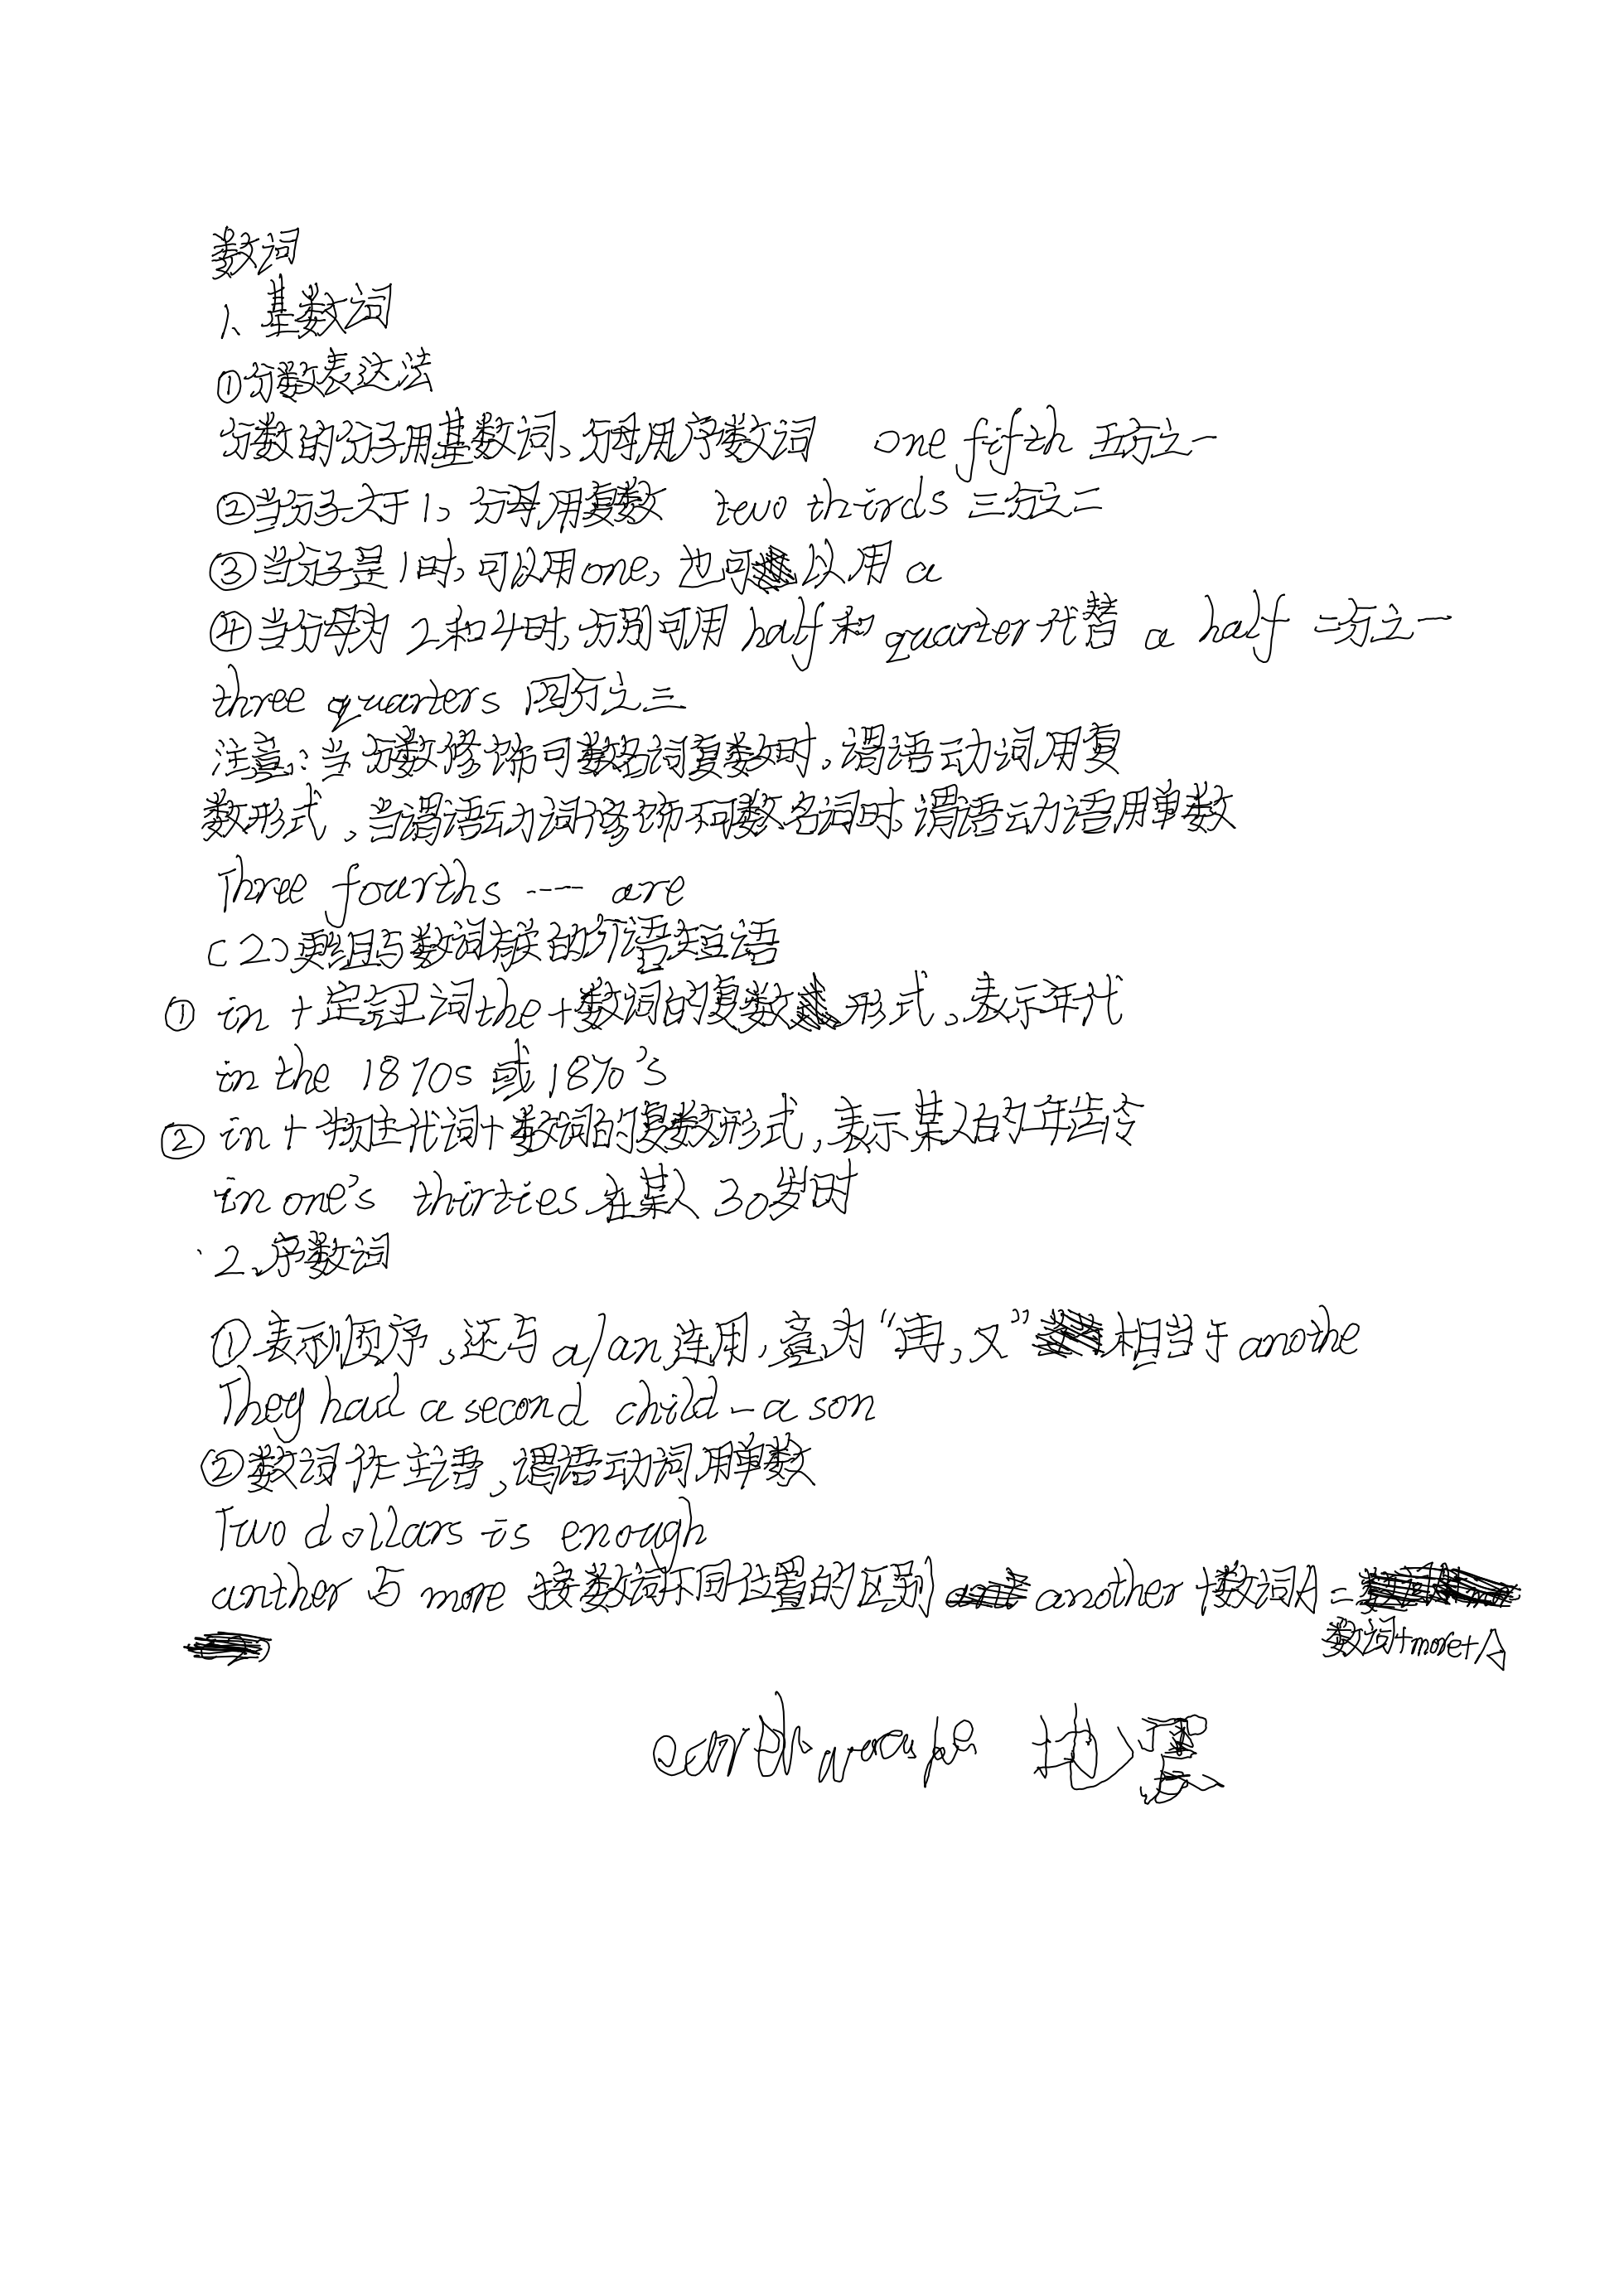 数词
1、基数词
①分数表达法
分数的分子用基数词、分母用序数词 one fifth 五分之一
②当分子大于1、分母用复数 two thirds 三分之二
③当分子是1时,可以用one,也可以用a
④当分母为2和4时,分别可用half和quarter代替 a half 二分之一
three quarters 四分之三
注意:当分数修饰可数名词复数时,谓语动词用复
数形式,当谓语动词修饰不可数名词时,谓语动语用单数
Three fourths ---- are
(2)两组与数词有关的介语短语
① in+定冠词the+数词的复数形式、表示年代
in the 1870s 或1870's
② in+物主代词+数词的复数形式,表示某人的年齿令
in one's thirties 在某人30岁时
2、序数词
①表示顺序,还与a/an连用,意为“再,又”相当于anothe
They had a second child-a son
②数词作主语,谓语动词用单数
Two dollars is enough
anther与more 接数词不同位置的区别 another+数词A=
数词+more+A
地